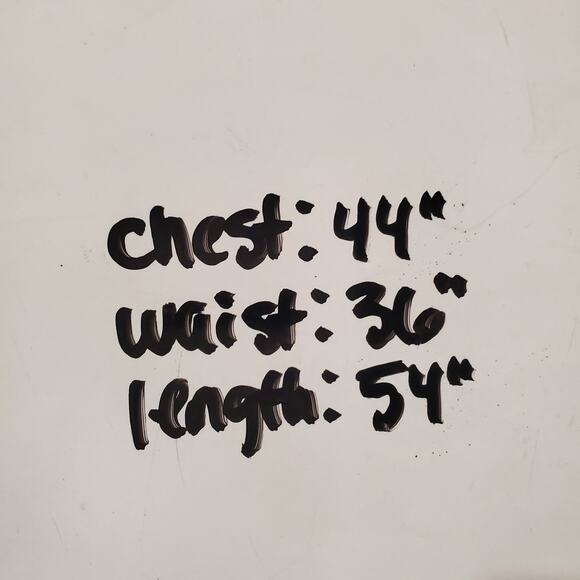 chest: 44"
waist: 36"
length: 54"